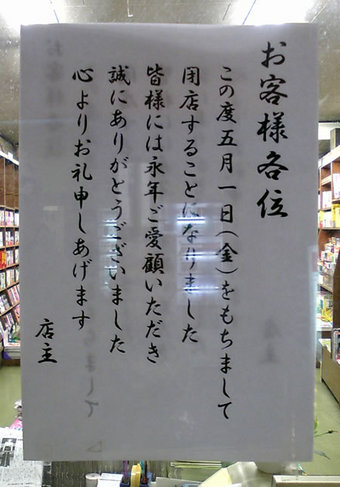 お客様各位
この度五月一日(金)をもちまして
閉店することになりました
皆様には永年ご愛顧いただき
誠にありがとうございました
心よりお礼申しあげます
店主